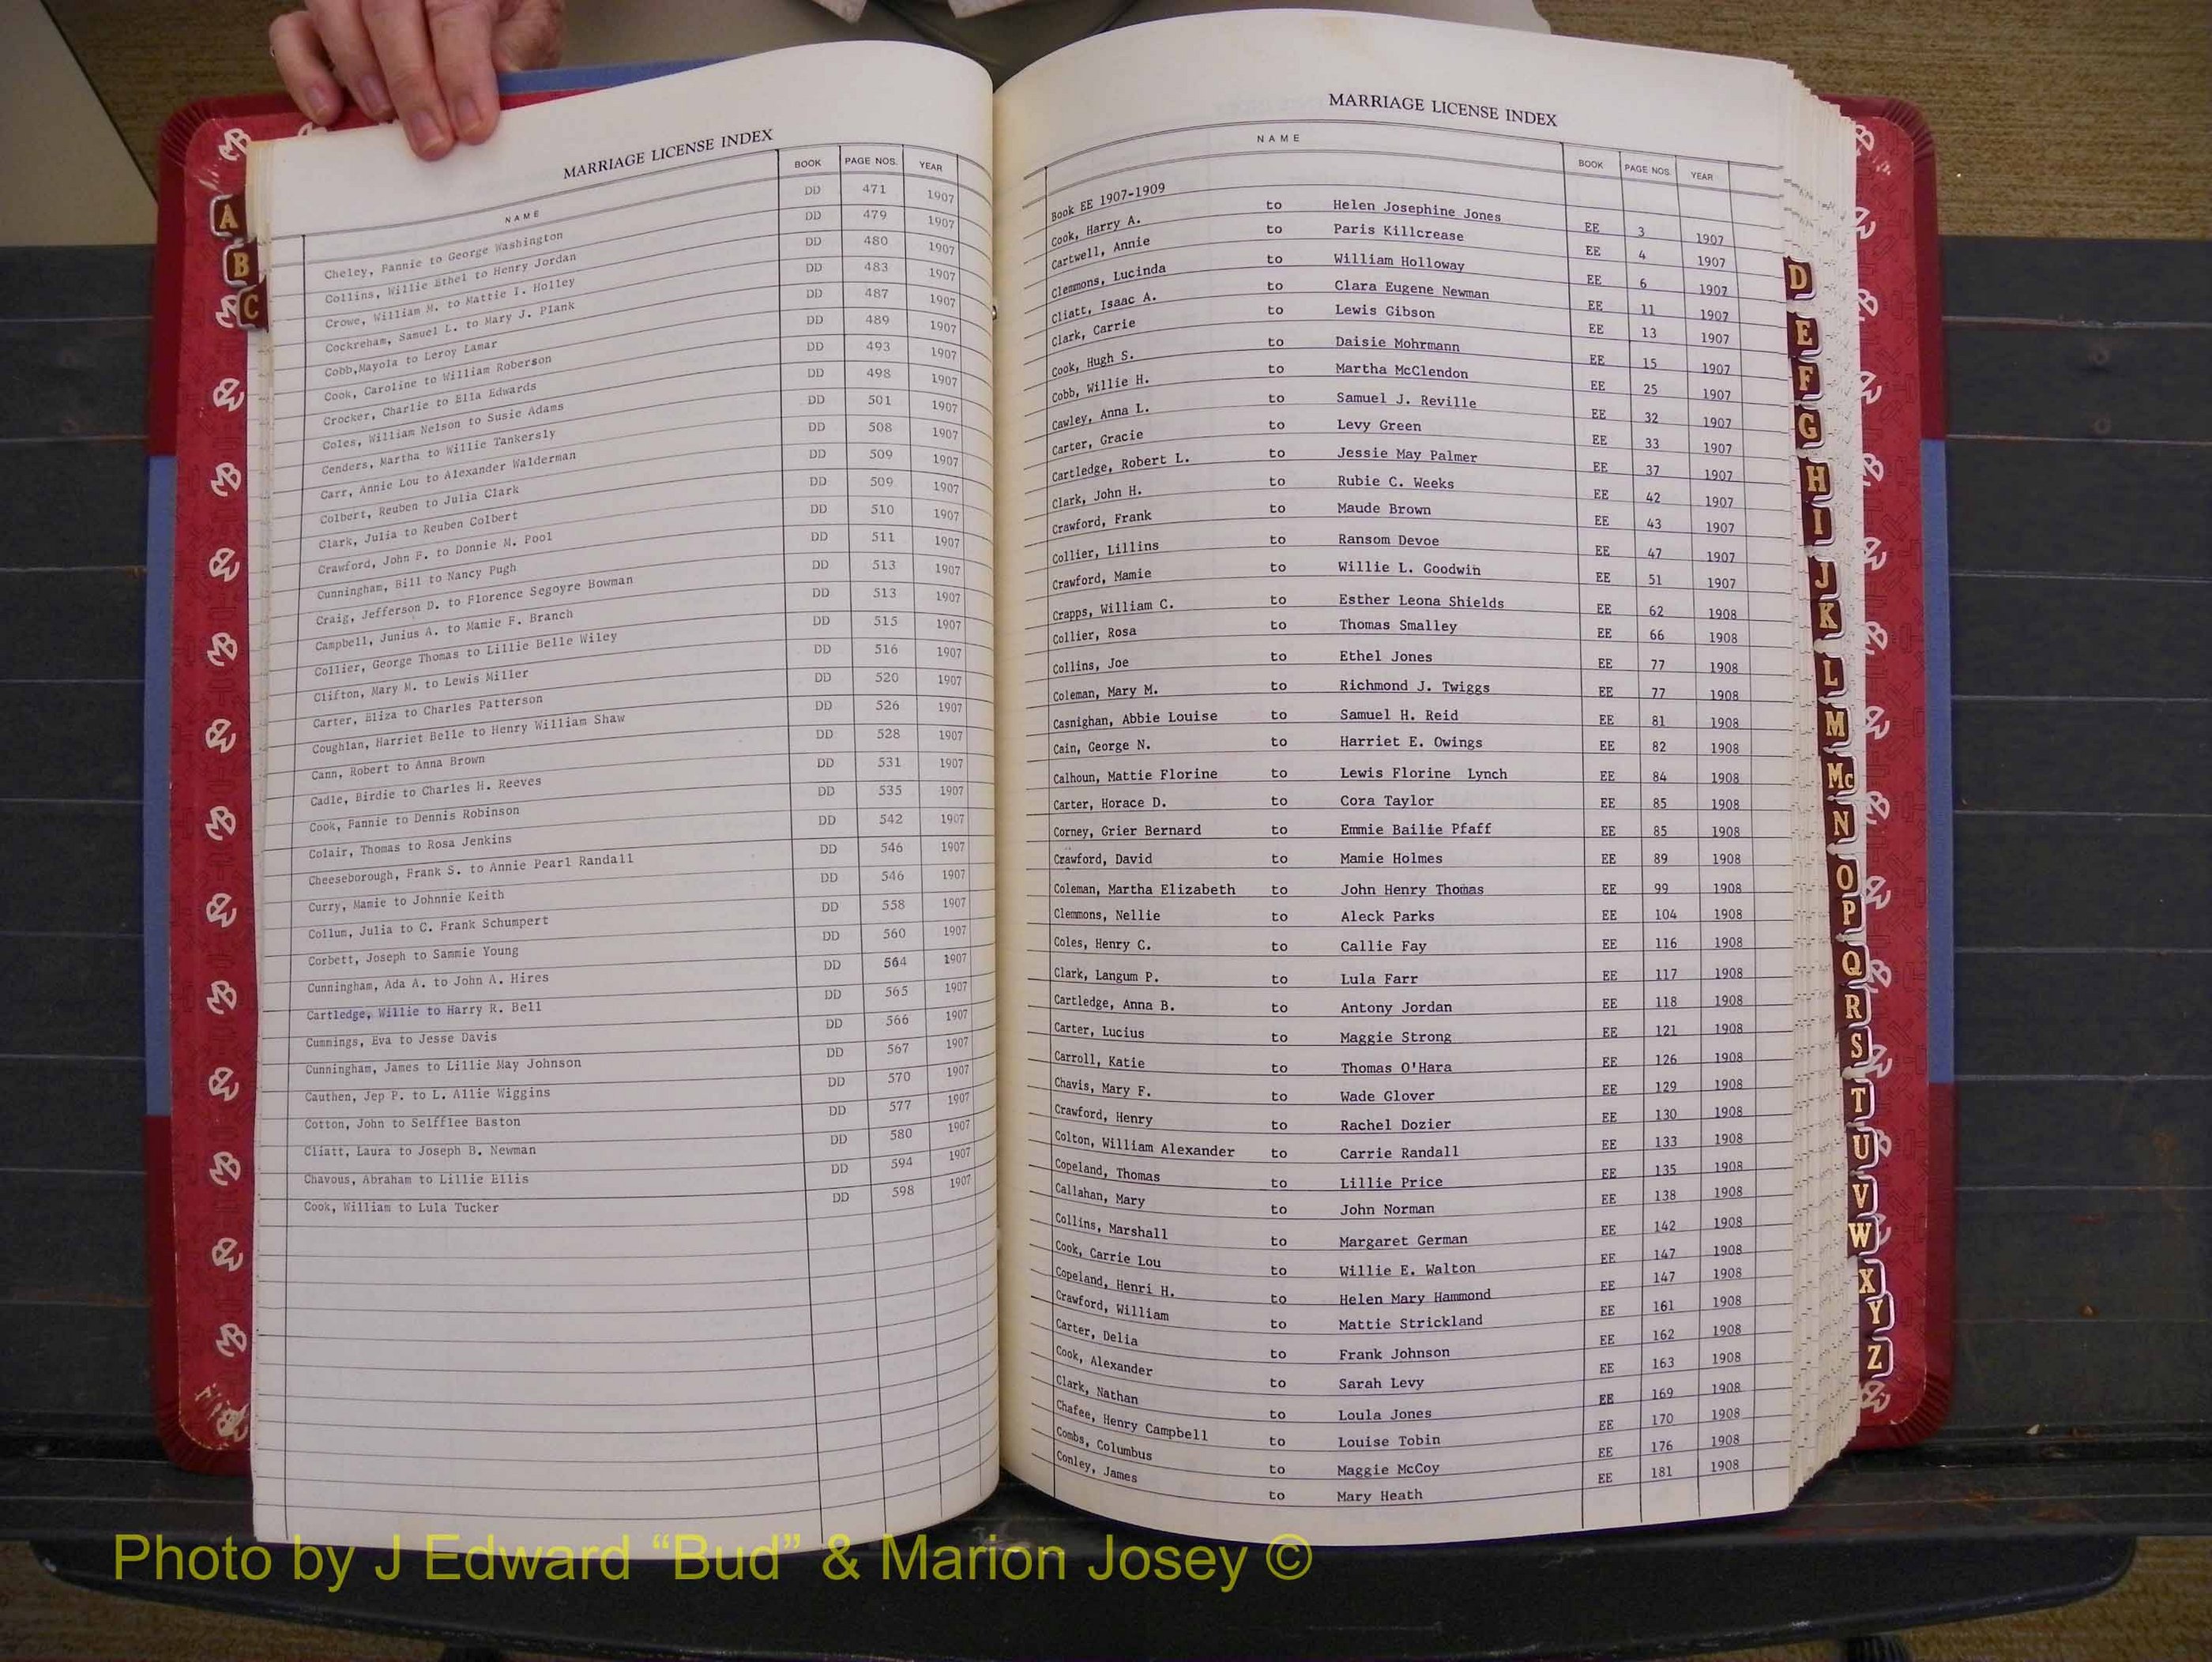 MARRIAGE LICENSE INDEX
NAME BOOK PAGE NOS. YEAR
Cheley, Fannie to George Washington DD 471 1907
Collins, Willie Ethel to Henry Jordan DD 479 1907
Crowe, William M. to Mattie I. Holley DD 480 1907
Cockreham, Samuel L. to Mary J. Plank DD 483 1907
Cobb,Mayola to Leroy Lamar DD 487 1907
Cook, Caroline to William Roberson DD 489 1907
Crocker, Charlie to Ella Edwards DD 493 1907
Coles, William Nelson to Susie Adams DD 498 1907
Cenders, Martha to Willie Tankersly DD 501 1907
Carr, Annie Lou to Alexander Walderman DD 508 1907
Colbert, Reuben to Julia Clark DD 509 1907
Clark, Julia to Reuben Colbert DD 509 1907
Crawford, John F. to Donnie M. Pool DD 510 1907
Cunningham, Bill to Nancy Pugh DD 511 1907
Craig, Jefferson D. to Florence Segoyre Bowman DD 513 1907
Campbell, Junius A. to Mamie F. Branch DD 513 1907
Collier, George Thomas to Lillie Belle Wiley DD 515 1907
Clifton, Mary M. to Lewis Miller DD 516 1907
Carter, Eliza to Charles Patterson DD 520 1907
Coughlan, Harriet Belle to Henry William Shaw DD 526 1907
Cann, Robert to Anna Brown DD 528 1907
Cadle, Birdie to Charles H. Reeves DD 531 1907
Cook, Fannie to Dennis Robinson DD 535 1907
Colair, Thomas to Rosa Jenkins DD 542 1907
Cheeseborough, Frank S. to Annie Pearl Randall DD 546 1907
Curry, Mamie to Johnnie Keith DD 546 1907
Collum, Julia to C. Frank Schumpert DD 558 1907
Corbett, Joseph to Sammie Young DD 560 1907
Cunningham, Ada A. to John A. Hires DD 564 1907
Cartledge, Willie to Harry R. Bell DD 565 1907
Cummings, Eva to Jesse Davis DD 566 1907
Cunningham, James to Lillie May Johnson DD 567 1907
Cauthen, Jep P. to L. Allie Wiggins DD 570 1907
Cotton, John to Seifflee Baston DD 577 1907
Cliatt, Laura to Joseph B. Newman DD 580 1907
Chavous, Abraham to Lillie Ellis DD 594 1907
Cook, William to Lula Tucker DD 598 1907
MARRIAGE LICENSE INDEX
NAME BOOK PAGE NOS. YEAR
Book EE 1907-1909
Cook, Harry A. to Helen Josephine Jones EE 3 1907
Cartwell, Annie to Paris Killcrease EE 4 1907
Clemmons, Lucinda to William Holloway EE 6 1907
Cliatt, Isaac A. to Clara Eugene Newman EE 11 1907
Clark, Carrie to Lewis Gibson EE 13 1907
Cook, Hugh S. to Daisie Mohrmann EE 15 1907
Cobb, Willie H. to Martha McClendon EE 25 1907
Cawley, Anna L. to Samuel J. Reville EE 32 1907
Carter, Gracie to Levy Green EE 33 1907
Cartledge, Robert L. to Jessie May Palmer EE 37 1907
Clark, John H. to Rubie C. Weeks EE 42 1907
Crawford, Frank to Maude Brown EE 43 1907
Collier, Lillins to Ransom Devoe EE 47 1907
Crawford, Mamie to Willie L. Goodwin EE 51 1907
Crapps, William C. to Esther Leona Shields EE 62 1908
Collier, Rosa to Thomas Smalley EE 66 1908
Collins, Joe to Ethel Jones EE 77 1908
Coleman, Mary M. to Richmond J. Twiggs EE 77 1908
Casnighan, Abbie Louise to Samuel H. Reid EE 81 1908
Cain, George N. to Harriet E. Owings EE 82 1908
Calhoun, Mattie Florine to Lewis Florine Lynch EE 84 1908
Carter, Horace D. to Cora Taylor EE 85 1908
Corney, Grier Bernard to Emmie Bailie Pfaff EE 85 1908
Crawford, David to Mamie Holmes EE 89 1908
Coleman, Martha Elizabeth to John Henry Thomas EE 99 1908
Clemmons, Nellie to Aleck Parks EE 104 1908
Coles, Henry C. to Callie Fay EE 116 1908
Clark, Langum P. to Lula Farr EE 117 1908
Cartledge, Anna B. to Antony Jordan EE 118 1908
Carter, Lucius to Maggie Strong EE 121 1908
Carroll, Katie to Thomas O'Hara EE 126 1908
Chavis, Mary F. to Wade Glover EE 129 1908
Crawford, Henry to Rachel Dozier EE 130 1908
Colton, William Alexander to Carrie Randall EE 133 1908
Copeland, Thomas to Lillie Price EE 135 1908
Callahan, Mary to John Norman EE 138 1908
Collins, Marshall to Margaret German EE 142 1908
Cook, Carrie Lou to Willie E. Walton EE 147 1908
Copeland, Henri H. to Helen Mary Hammond EE 147 1908
Crawford, William to Mattie Strickland EE 161 1908
Carter, Delia to Frank Johnson EE 162 1908
Cook, Alexander to Sarah Levy EE 163 1908
Clark, Nathan to Loula Jones EE 169 1908
Chafee, Henry Campbell to Louise Tobin EE 170 1908
Combs, Columbus to Maggie McCoy EE 176 1908
Conley, James to Mary Heath EE 181 1908
A
B
C
D
E
F
G
H
I
J
K
L
M
Mc
N
O
P
Q
R
S
T
U
V
W
X
Y
Z
Photo by J Edward “Bud” & Marion Josey ©